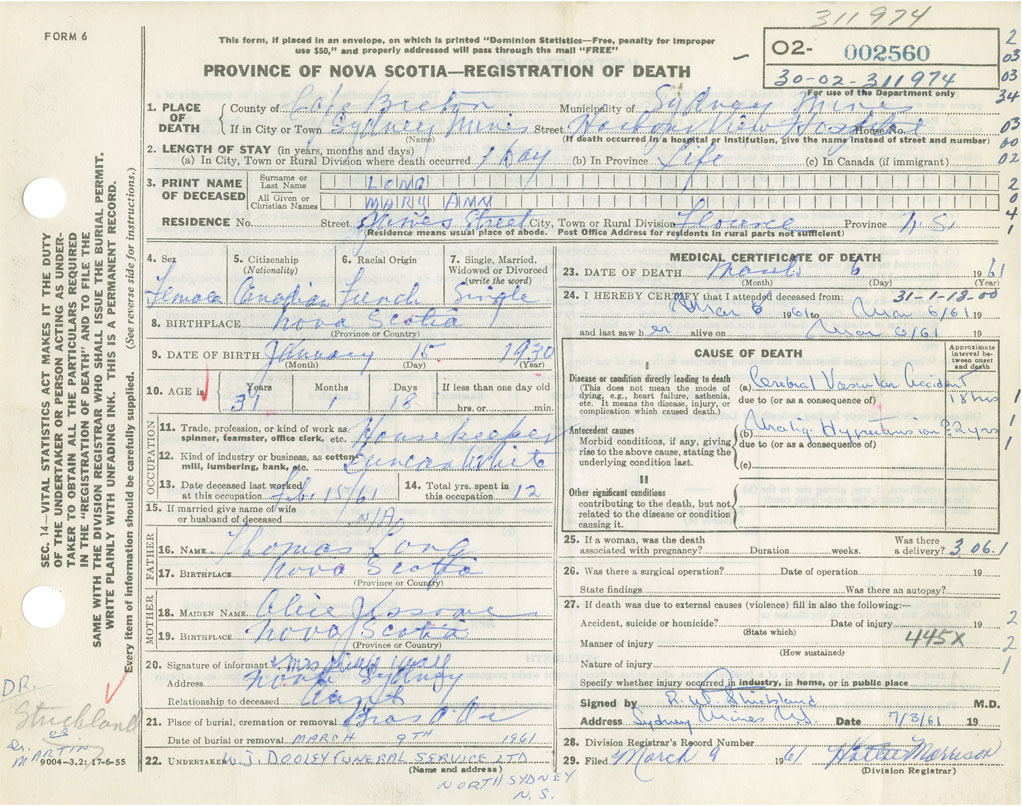 311974
FORM 6
This form, if placed in an envelope, on which is printed "Dominion Statistics—Free, penalty for improper
use $50," and properly addressed will pass through the mail "FREE"
PROVINCE OF NOVA SCOTIA—REGISTRATION OF DEATH
02- 002560
30-02-311974
For use of the Department only
2
03
03
34
03
00
02
2
0
4
1
1. PLACE OF DEATH
County of Cape Breton Municipality of Sydney Mines
If in City or Town Sydney Mines Street Harbour View Hospital House No.
(Name) (If death occurred in a hospital or institution, give the name instead of street and number)
2. LENGTH OF STAY (in years, months and days)
(a) In City, Town or Rural Division where death occurred 1 day (b) In Province Life (c) In Canada (if immigrant)
3. PRINT NAME OF DECEASED
Surname or Last Name LONG
All Given or Christian Names MARY ANN
RESIDENCE No. Street Street City, Town or Rural Division Florence Province N.S.
(Residence means usual place of abode. Post Office Address for residents in rural parts not sufficient)
4. Sex Female
5. Citizenship (Nationality) Canadian
6. Racial Origin French
7. Single, Married, Widowed or Divorced (write the word) Single
8. BIRTHPLACE Nova Scotia
(Province or Country)
9. DATE OF BIRTH January 15 1930
(Month) (Day) (Year)
10. AGE in Years Months Days If less than one day old
31 1 18 hrs. or min.
OCCUPATION
11. Trade, profession, or kind of work as spinner, teamster, office clerk, etc. Housekeeper
12. Kind of industry or business, as cotton mill, lumbering, bank, etc. Duncan White
13. Date deceased last worked at this occupation Feb. 15/61
14. Total yrs. spent in this occupation 12
15. If married give name of wife or husband of deceased N/A
FATHER
16. NAME Thomas Long
17. BIRTHPLACE Nova Scotia
(Province or Country)
MOTHER
18. MAIDEN NAME Alice
19. BIRTHPLACE Nova Scotia
(Province or Country)
20. Signature of informant Mrs
Address North Sydney
Relationship to deceased Aunt
21. Place of burial, cremation or removal Bras d'Or
Date of burial or removal MARCH 9TH 1961
22. UNDERTAKER W.J. DOOLEY FUNERAL SERVICE LTD
(Name and address)
NORTH SYDNEY
N.S.
MEDICAL CERTIFICATE OF DEATH
23. DATE OF DEATH March 6 1961
(Month) (Day) (Year)
31-1-18-00
24. I HEREBY CERTIFY that I attended deceased from:
Mar 6 1961 to Mar 6/61 19
and last saw her alive on Mar 6/61 19
CAUSE OF DEATH
Approximate interval between onset and death
I
Disease or condition directly leading to death
(This does not mean the mode of dying, e.g., heart failure, asthenia, etc. It means the disease, injury, or complication which caused death.)
(a) Cerebral Vascular Accident 18 hrs
due to (or as a consequence of)
Antecedent causes
Morbid conditions, if any, giving rise to the above cause, stating the underlying condition last.
(b) Malig. Hypertension ? 2 yrs
due to (or as a consequence of)
(c)
II
Other significant conditions
contributing to the death, but not related to the disease or condition causing it.
1
1
1
25. If a woman, was the death associated with pregnancy? Duration weeks. Was there a delivery? 3 06.1
26. Was there a surgical operation? Date of operation 19
State findings Was there an autopsy?
27. If death was due to external causes (violence) fill in also the following:—
Accident, suicide or homicide? Date of injury 19
(State which)
445X
Manner of injury
(How sustained)
Nature of injury
Specify whether injury occurred in industry, in home, or in public place
2
2
1
Signed by R. W. Strickland M.D.
Address Sydney Mines N.S. Date 7/3/61 19
28. Division Registrar's Record Number
29. Filed March 9 1961 Hattie Morrison
(Division Registrar)
SEC. 14—VITAL STATISTICS ACT MAKES IT THE DUTY
OF THE UNDERTAKER OR PERSON ACTING AS UNDERTAKER
TO OBTAIN ALL THE PARTICULARS REQUIRED
IN THE "REGISTRATION OF DEATH" AND TO FILE THE
SAME WITH THE DIVISION REGISTRAR WHO SHALL ISSUE THE BURIAL PERMIT.
WRITE PLAINLY WITH UNFADING INK. THIS IS A PERMANENT RECORD.
Every item of information should be carefully supplied. (See reverse side for instructions.)
DR.
Strickland
or
Dr. MARTIN
9004-3.2: 17-6-55